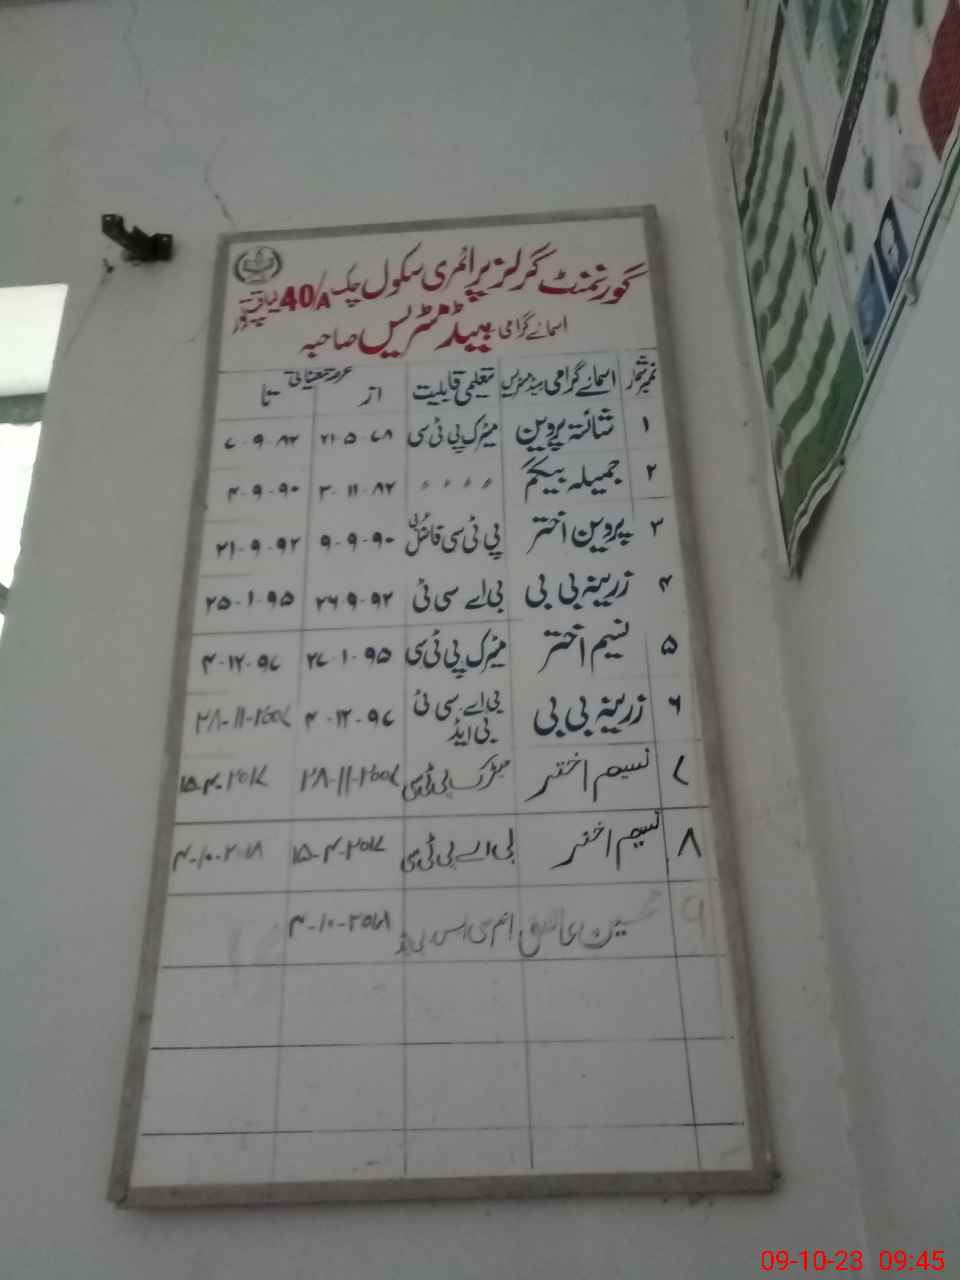 گورنمنٹ گرلز پرائمری سکول چک 40/A لیاقت پور
اسمائے گرامی ہیڈ مسٹریس صاحبہ
نمبر شمار اسمائے گرامی ہیڈ مسٹریس تعلیمی قابلیت عرصہ تعیناتی
از تا
۱ شائستہ پروین میٹرک پی ٹی سی ۲۱-۵-۷۸ ۷-۹-۸۲
۲ جمیلہ بیگم 〃 〃 〃 〃 ۳-۱۱-۸۲ ۴-۹-۹۰
۳ پروین اختر پی ٹی سی فاضل عربی ۹-۹-۹۰ ۲۱-۹-۹۲
۴ زرینہ بی بی بی اے سی ٹی ۲۶-۹-۹۲ ۲۵-۱-۹۵
۵ نسیم اختر میٹرک پی ٹی سی ۲۷-۱-۹۵ ۴-۱۲-۹۷
۶ زرینہ بی بی بی اے سی ٹی بی ایڈ ۴-۱۲-۹۷ ۲۸-۱۱-۲۰۰۷
۷ نسیم اختر میٹرک پی ٹی سی ۲۸-۱۱-۲۰۰۷ ۱۵-۴-۲۰۱۷
۸ نسیم اختر بی اے پی ٹی سی ۱۵-۴-۲۰۱۷ ۴-۱۰-۲۰۱۸
۹ ایم سی ایس بی ایڈ ۴-۱۰-۲۰۱۸
09-10-23 09:45